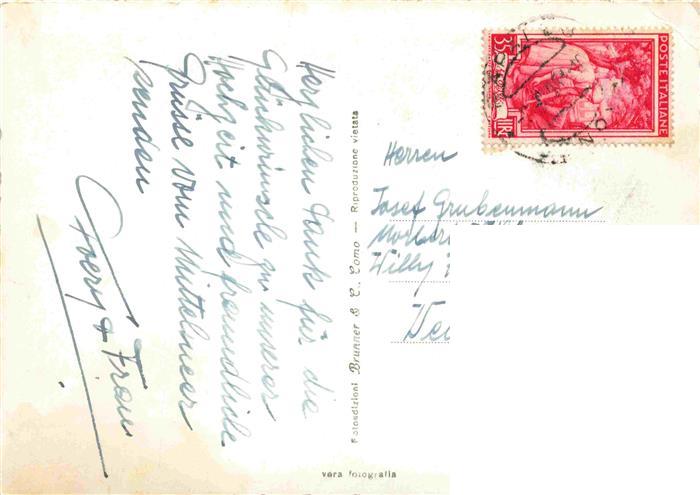 Herzlichen Dank für die
Glückwünsche zu unserer
Hochzeit und freundliche
Grüsse vom Mittelmeer
senden
+ Frau
Fotoedizioni Brunner & C., Como — Riproduzione vietata
vera fotografia
POSTE ITALIANE
35 LIRE
Herren
Josef Grubenmann
Willy